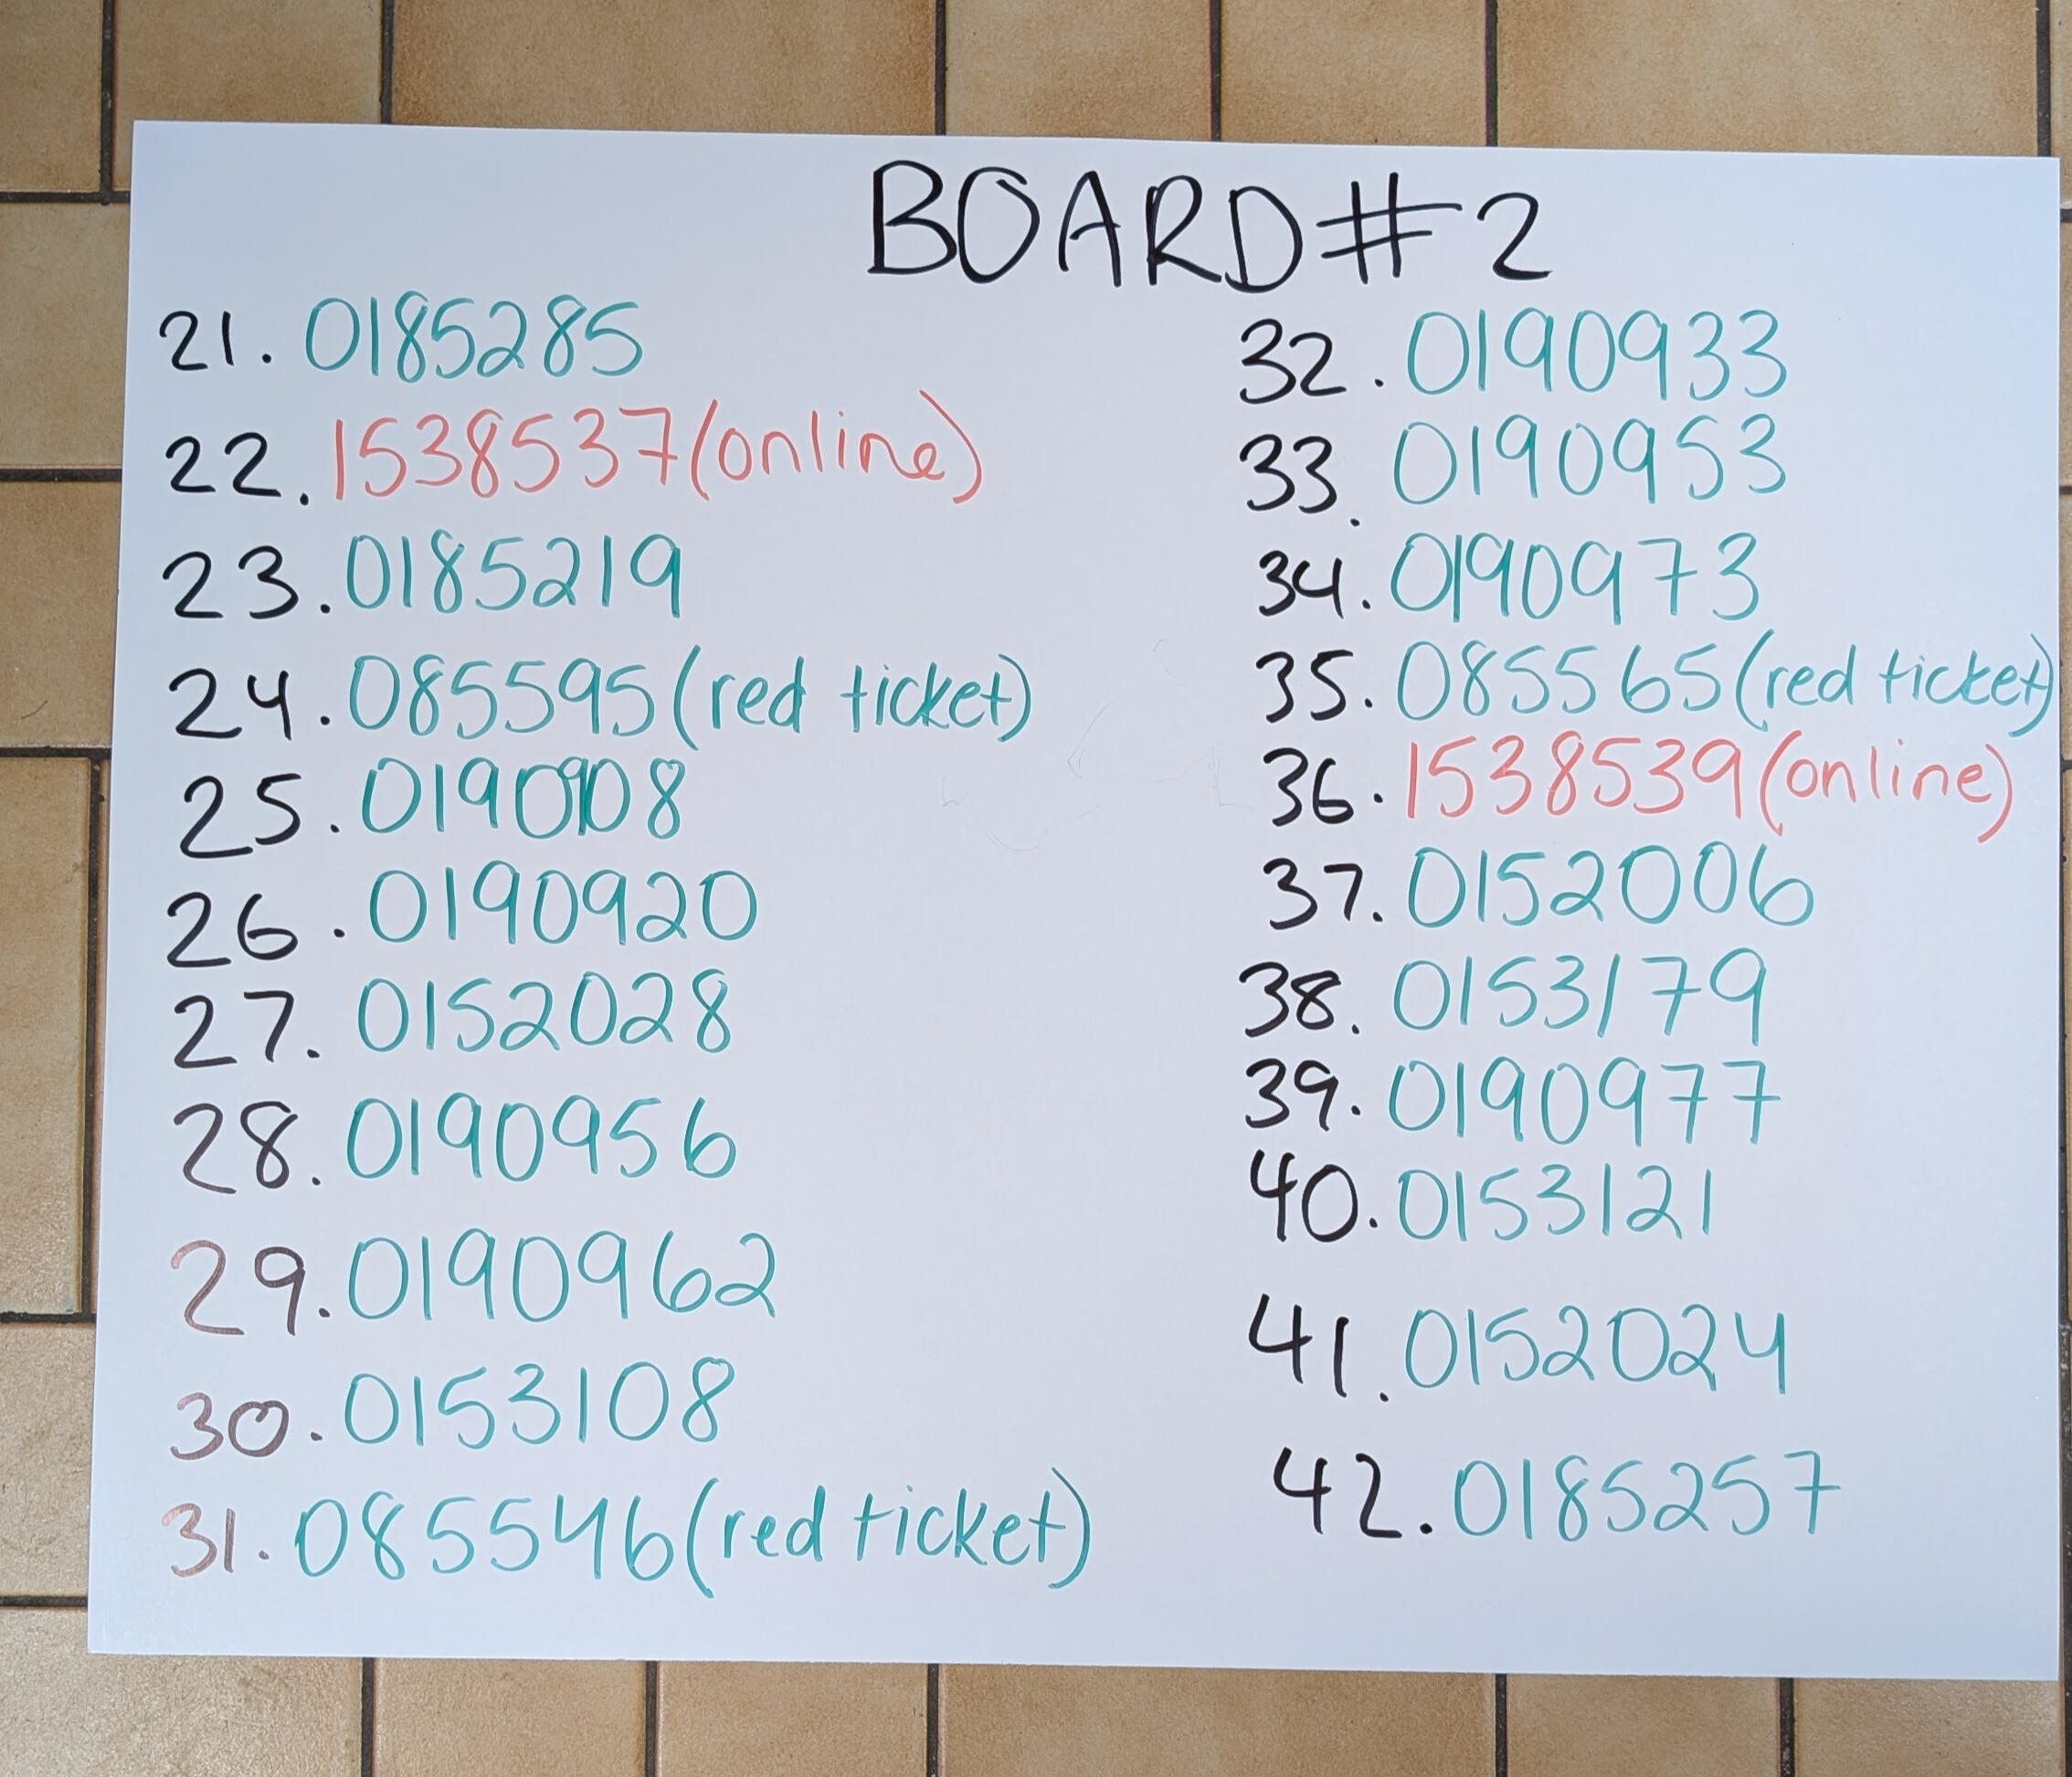 BOARD #2
21. 0185285
22. 1538537 (online)
23. 0185219
24. 085595 (red ticket)
25. 0190908
26. 0190920
27. 0152028
28. 0190956
29. 0190962
30. 0153108
31. 085546 (red ticket)
32. 0190933
33. 0190953
34. 0190973
35. 085565 (red ticket)
36. 1538539 (online)
37. 0152006
38. 0153179
39. 0190977
40. 0153121
41. 0152024
42. 0185257